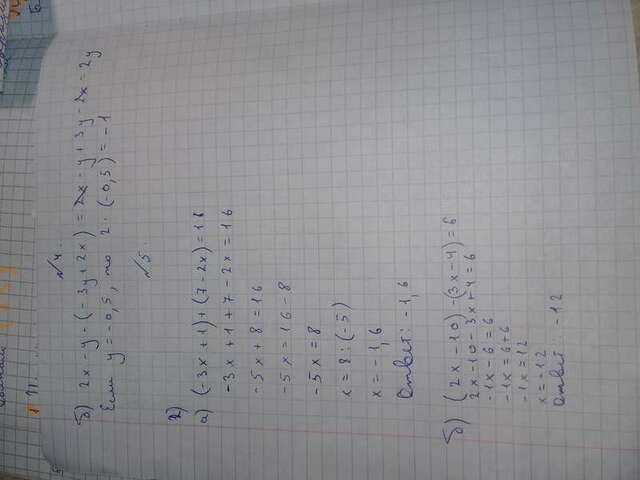 №4.
б) 2x - y - (-3y + 2x) = 2x - y + 3y - 2x = 2y
Если y = -0,5, то 2 · (-0,5) = -1
№5.
2)
а) (-3x + 1) + (7 - 2x) = 16
-3x + 1 + 7 - 2x = 16
-5x + 8 = 16
-5x = 16 - 8
-5x = 8
x = 8 : (-5)
x = -1,6
Ответ: -1,6
б) (2x - 10) - (3x - 4) = 6
2x - 10 - 3x + 4 = 6
-1x - 6 = 6
-1x = 6 + 6
-1x = 12
x = -12
Ответ: -12